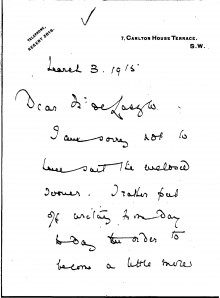 TELEPHONE,
REGENT 3010.
7, CARLTON HOUSE TERRACE.
S.W.
March 3. 1915
Dear Mr de Laszlo
I am sorry not to
have sent the enclosed
sooner. I rather put
off writing from day
to day in order to
become a little more